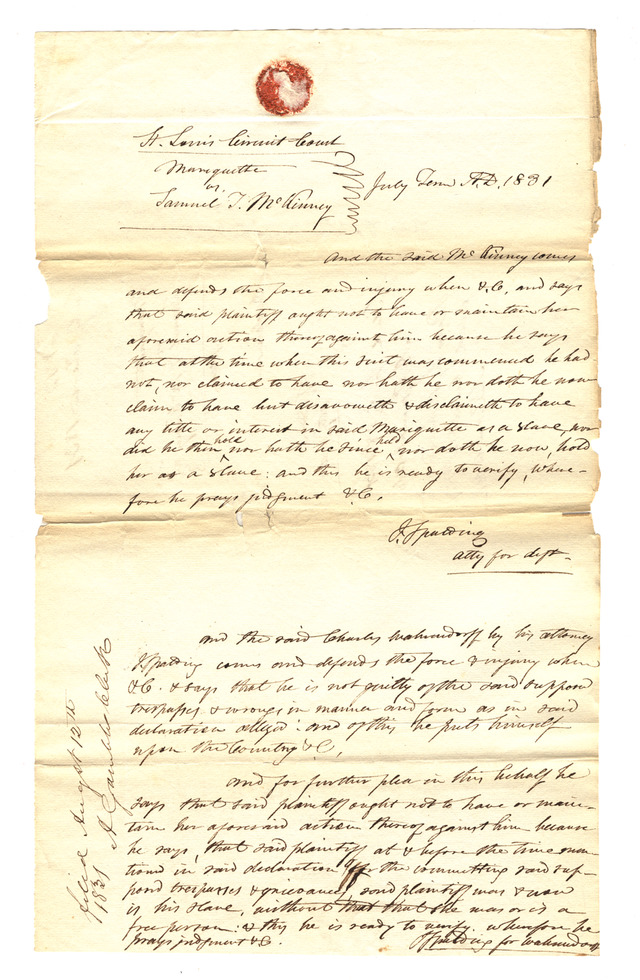 St. Louis Circuit Court
Mariguette
vs.
Samuel T. McKinney
July Term A.D. 1831
And the said McKinney comes
and defends the force and injury when &C. and says
that said plaintiff ought not to have or maintain her
aforesaid action thereof against him because he says
that at the time when this suit was commenced he had
not, nor claimed to have nor hath he nor doth he now
claim to have but disavoweth & disclaimeth to have
any title or interest in said Mariguette as a slave, nor
did he then hold nor hath he since held, nor doth he now, hold
her as a slave: and this he is ready to verify, where-
fore he prays judgment &C.
J. Spalding
atty for deft-
and the said Charles Wahrendorff by his attorney
J. Spalding comes and defends the force & injury when
&C. & says that he is not guilty of the said supposed
trespasses & wrongs in manner and form as in said
declaration alleged: and of this he puts himself
upon the Country &C,
and for further plea in this behalf he
says that said plaintiff ought not to have or main-
tain her aforesaid action thereof against him because
he says, that said plaintiff at & before the time men-
tioned in said declaration for the committing said sup-
posed trespasses & grievances, said plaintiff was & now
is his slave, without that that she was or is a
free person: & this he is ready to verify. wherefore he
prays judgment &C.
J Spalding for Wahrendorff
Filed August 12th
1831 A Gamble Clerk